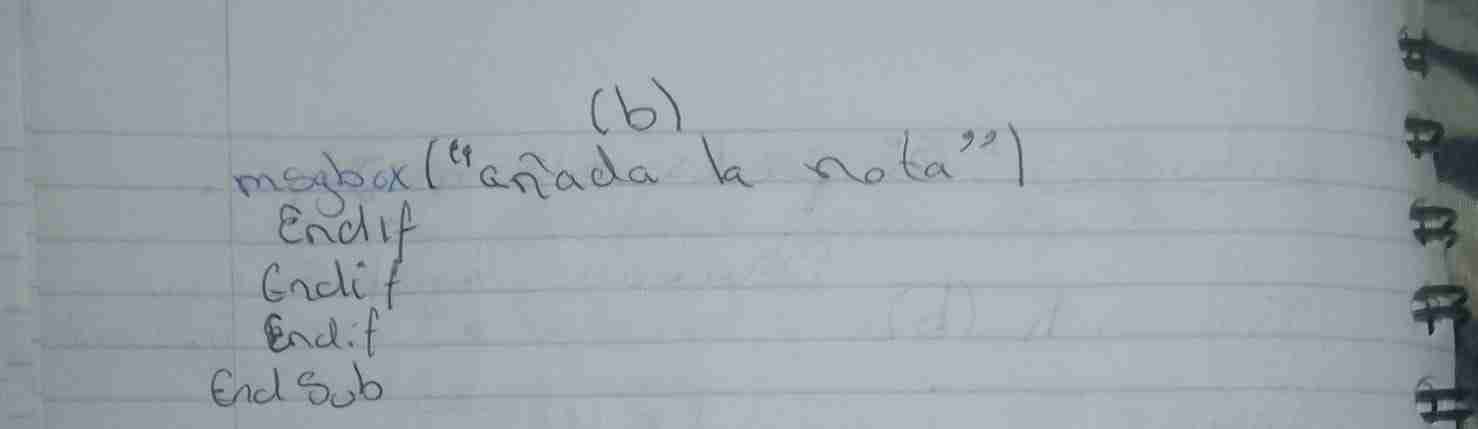 (b)
msgbox("añada la nota")
Endif
Endif
Endif
End Sub